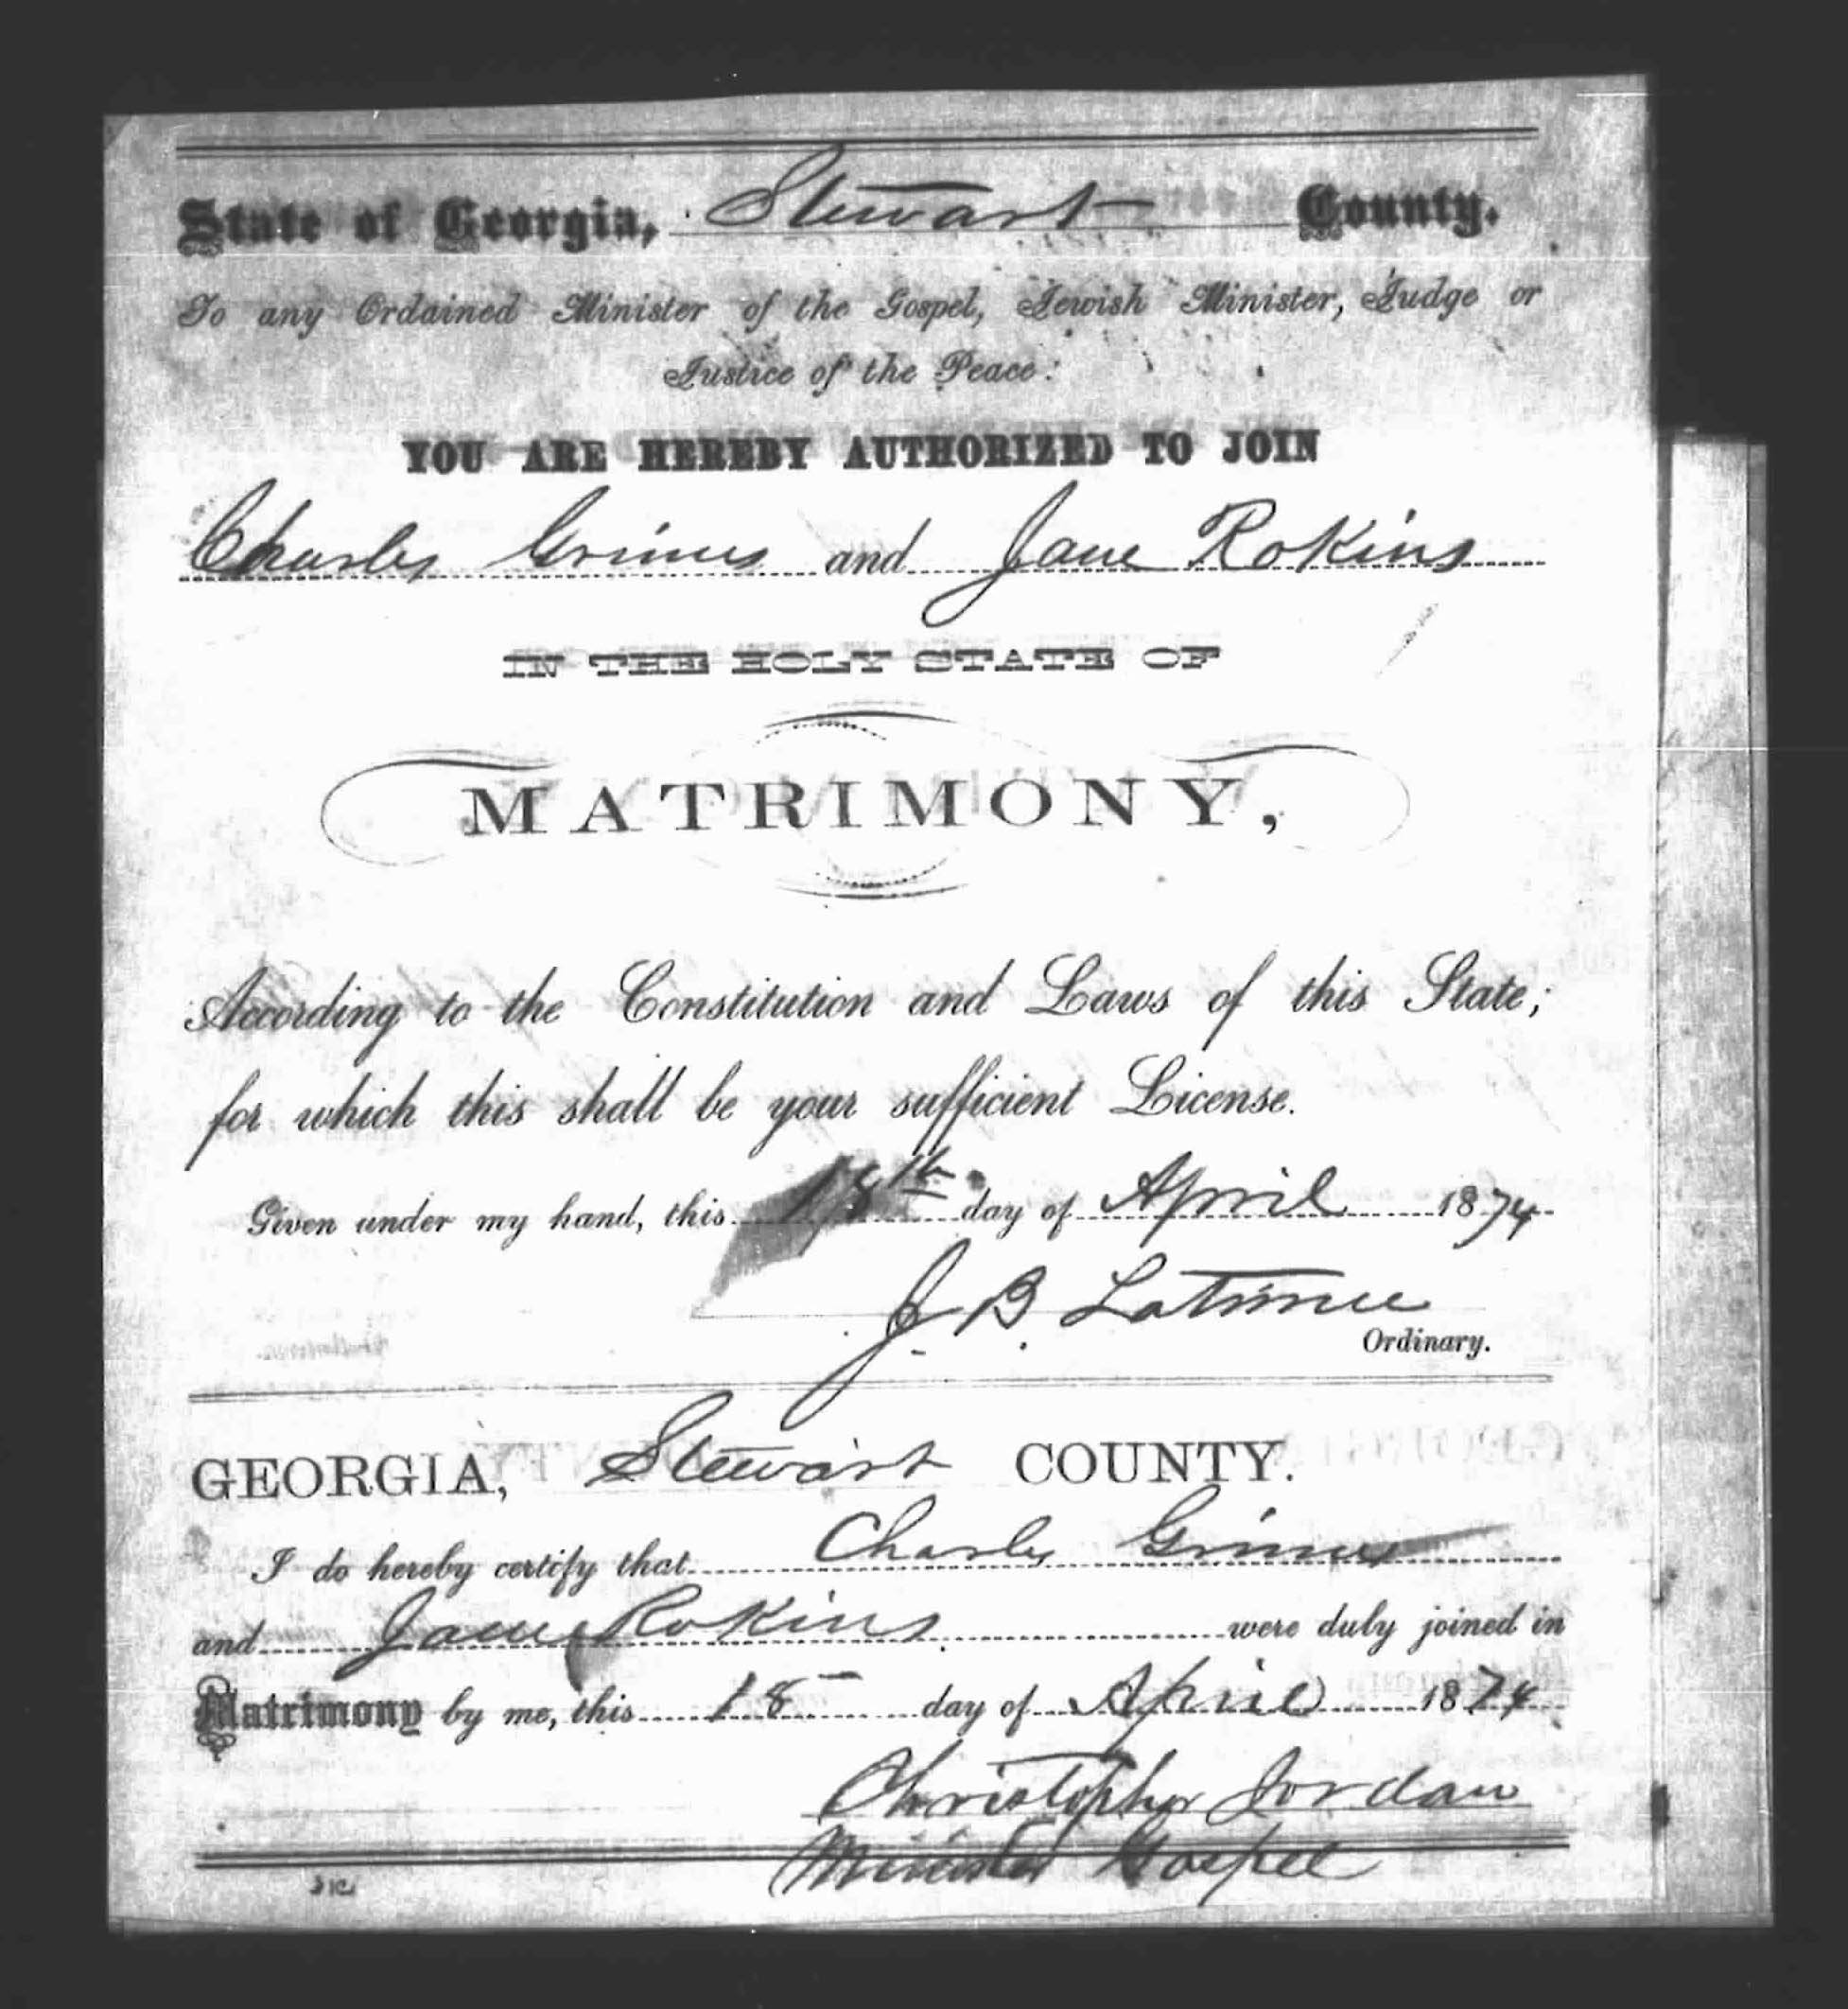 State of Georgia, Stewart County.
To any Ordained Minister of the Gospel, Jewish Minister, Judge or
Justice of the Peace:
YOU ARE HEREBY AUTHORIZED TO JOIN
Charles Grimes and Jane Rokins
IN THE HOLY STATE OF
MATRIMONY,
According to the Constitution and Laws of this State;
for which this shall be your sufficient License.
Given under my hand, this 18th day of April 1874
J. B. Latimer
Ordinary.
GEORGIA, Stewart COUNTY.
I do hereby certify that Charles Grimes
and Jane Rokins were duly joined in
Matrimony by me, this 18 day of April 1874
Christopher Jordan
Minister Gospel